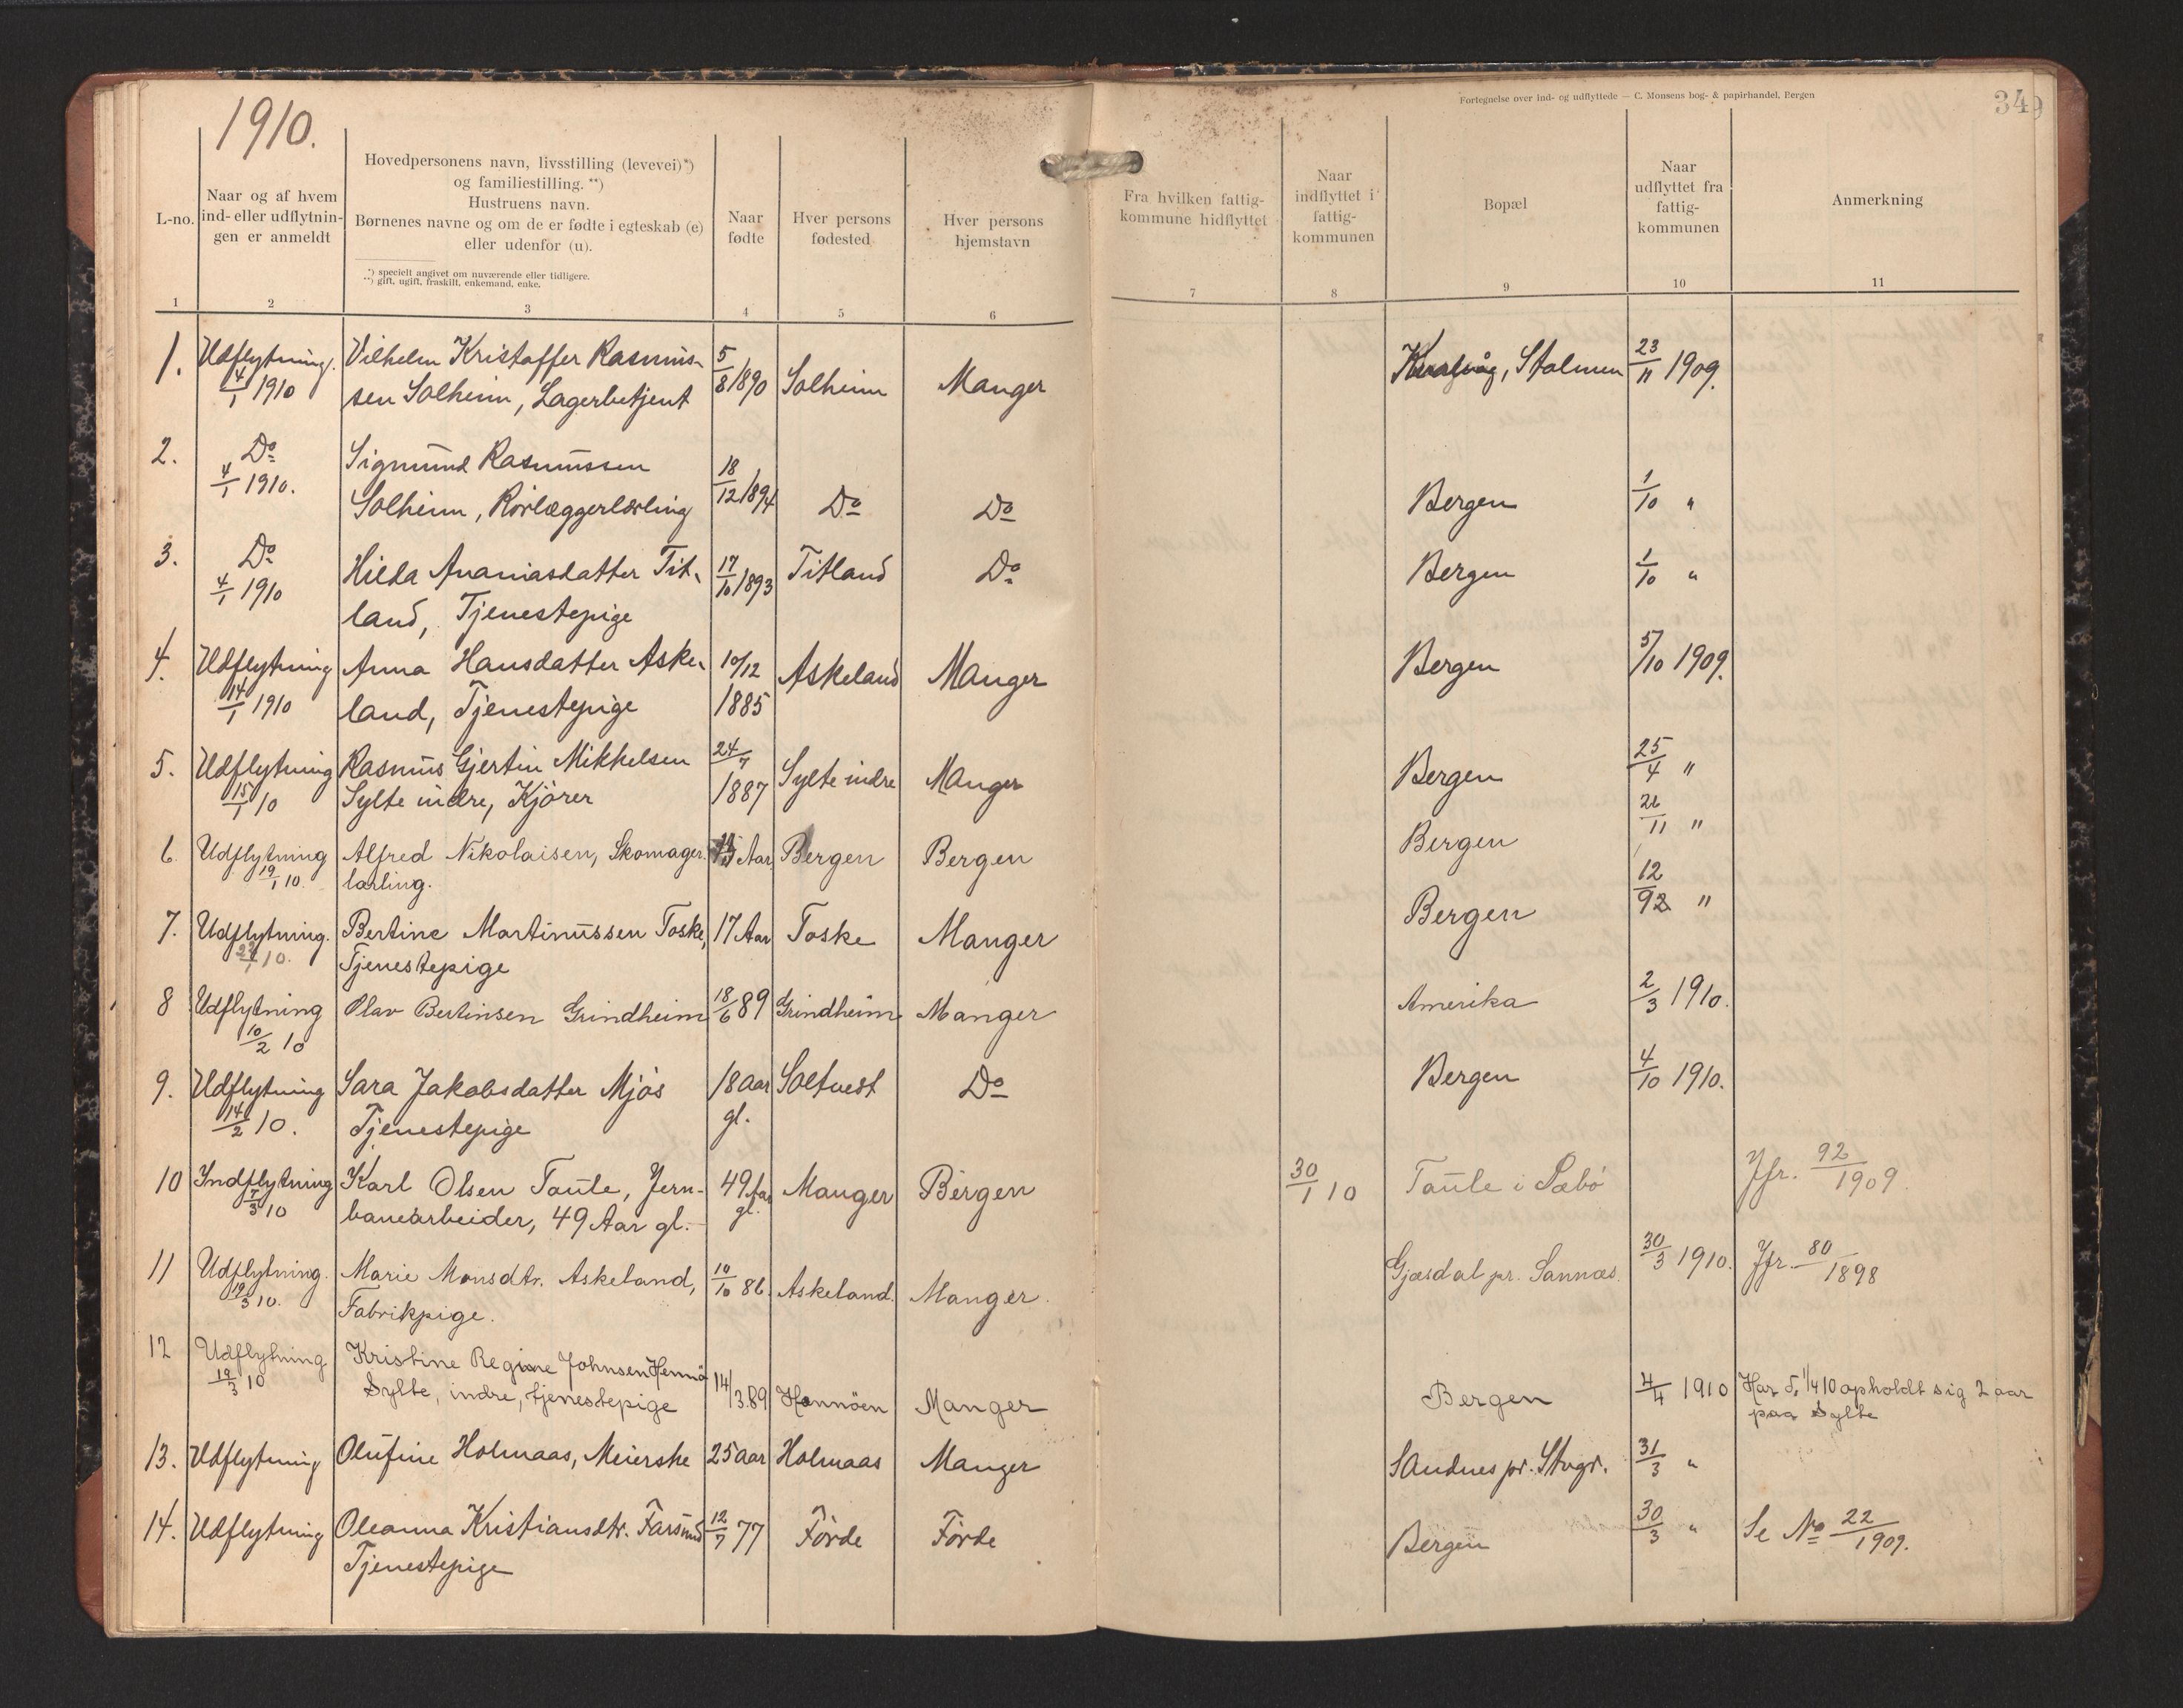 1910.
Fortegnelse over ind- og udflyttede — C. Monsens bog- & papirhandel, Bergen
349
L-no.
Naar og af hvem
ind- eller udflytnin-
gen er anmeldt
Hovedpersonens navn, livsstilling (levevei)*)
og familiestilling. **)
Hustruens navn.
Børnenes navne og om de er fødte i egteskab (e)
eller udenfor (u).
*) specielt angivet om nuværende eller tidligere.
**) gift, ugift, fraskilt, enkemand, enke.
Naar
fødte
Hver persons
fødested
Hver persons
hjemstavn
Fra hvilken fattig-
kommune hidflyttet
Naar
indflyttet i
fattig-
kommunen
Bopæl
Naar
udflyttet fra
fattig-
kommunen
Anmerkning
1 2 3 4 5 6 7 8 9 10 11
1. Udflytning. Vilhelm Kristoffer Rasmus- 5/8 1890 Solheim Manger Kvalvåg, Stolmen 23/11 1909.
4/1 1910 sen Solheim, Lagerbetjent
2. Do Sigmund Rasmussen 18/12 1894 Do Do Bergen 1/10 "
4/1 1910. Solheim, Rörlæggerlærling
3. Do Hilda Ananiasdatter Tit- 17/10 1893 Titland Do Bergen 1/10 "
4/1 1910 land, Tjenestepige
4. Udflytning Anna Hansdatter Aske- 10/12 Askeland Manger Bergen 5/10 1909.
14/1 1910 land, Tjenestepige 1885
5. Udflytning Rasmus Gjertin Mikkelsen 24/7 Sylte indre Manger Bergen 25/4 "
15/1 10 Sylte indre, Kjörer 1887
6 Udflytning Alfred Nikolaisen, Skomager- Aar Bergen Bergen Bergen 26/11 "
19/1 10. lærling.
7. Udflytning. Bertine Martinussen Toske, 17 Aar Toske Manger Bergen 12/92 "
10. Tjenestepige
8 Udflytning Olav Bertinsen Grindheim 18/6 89 Grindheim Manger Amerika 2/3 1910.
10/2 10
9. Udflytning Sara Jakobsdatter Mjös 18 aar Soltvedt Do Bergen 4/10 1910.
14/2 10. Tjenestepige gl.
10 Indflytning Karl Olsen Taule, Jern- 49 Aar Manger Bergen 30/1 10 Taule i Sæbö Jfr. 92/1909.
7/3 10 banearbeider, 49 Aar gl. gl.
11 Udflytning. Marie Monsdtr. Askeland, 10/10 86. Askeland. Manger. Gjæsdal pr. Sannæs. 30/3 1910. Jfr. 80/1898
3 10. Fabrikpige.
12 Udflytning Kristine Regine Johnsen Hennö 14/3.89 Hennöen Manger Bergen 4/4 1910 Har 1/4 10 opholdt sig 2 aar
19/3 10 Sylte, indre, tjenestepige paa Sylte
13. Udflytning Olufine Holmaas, Meierske 25 aar Holmaas Manger Sandnes pr. Stvgr. 31/3 "
14. Udflytning Oleanna Kristiansdtr. Farsund 12/7 77 Förde Förde Bergen 30/3 " Se No 22/1909.
Tjenestepige